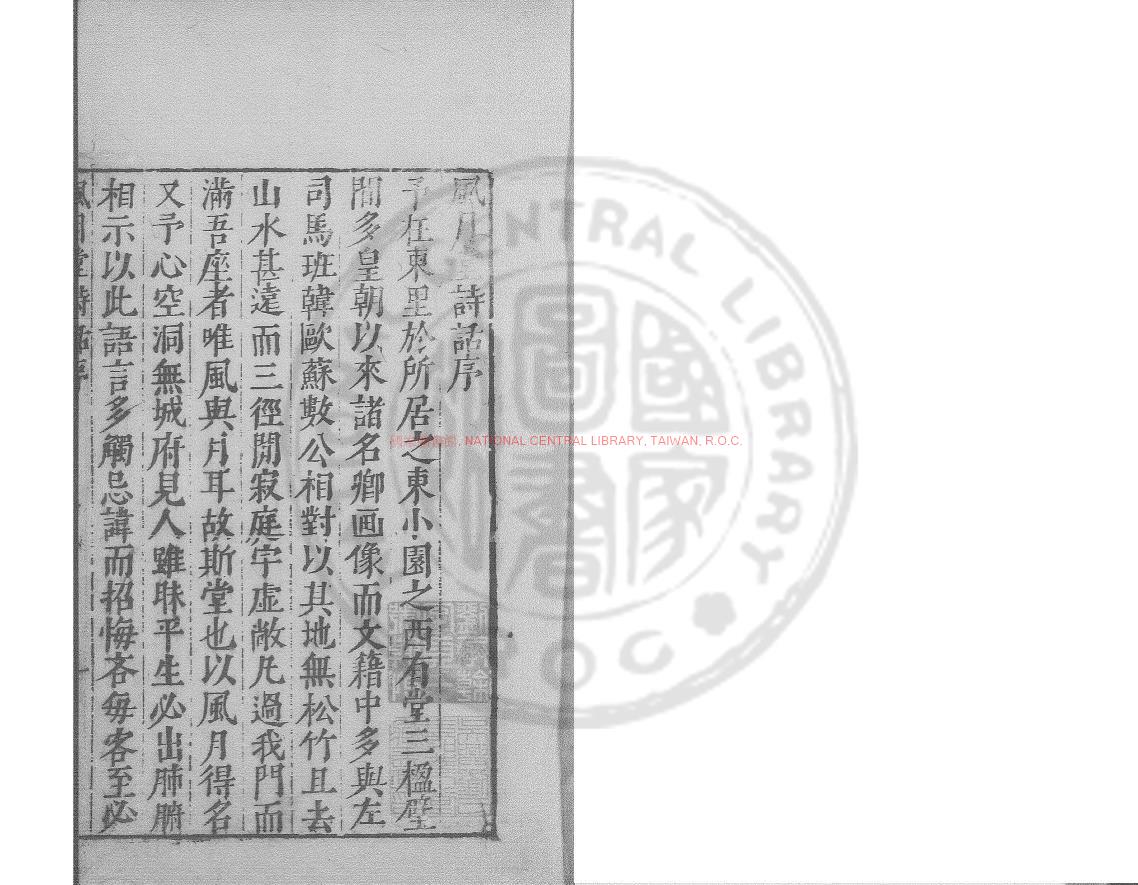 風月堂詩話序
予在東里於所居之東小園之西有堂三楹壁
間多皇朝以來諸名卿画像而文籍中多與左
司馬班韓歐蘇數公相對以其地無松竹且去
山水甚遠而三徑閒寂庭宇虛敞凡過我門而
滿吾座者唯風與月耳故斯堂也以風月得名
又予心空洞無城府見人雖昧平生必出肺腑
相示以此語言多觸忌諱而招悔吝每客至必
風月堂詩話序
一
NATIONAL CENTRAL LIBRARY, TAIWAN, R.O.C.
CENTRAL LIBRARY
R O C
國家圖書